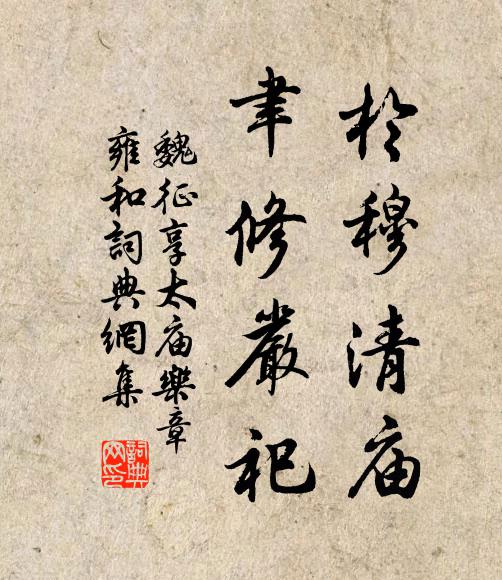 於穆清庙
聿修嚴祀
魏征享太庙樂章
雍和詞典網集
詞典网印